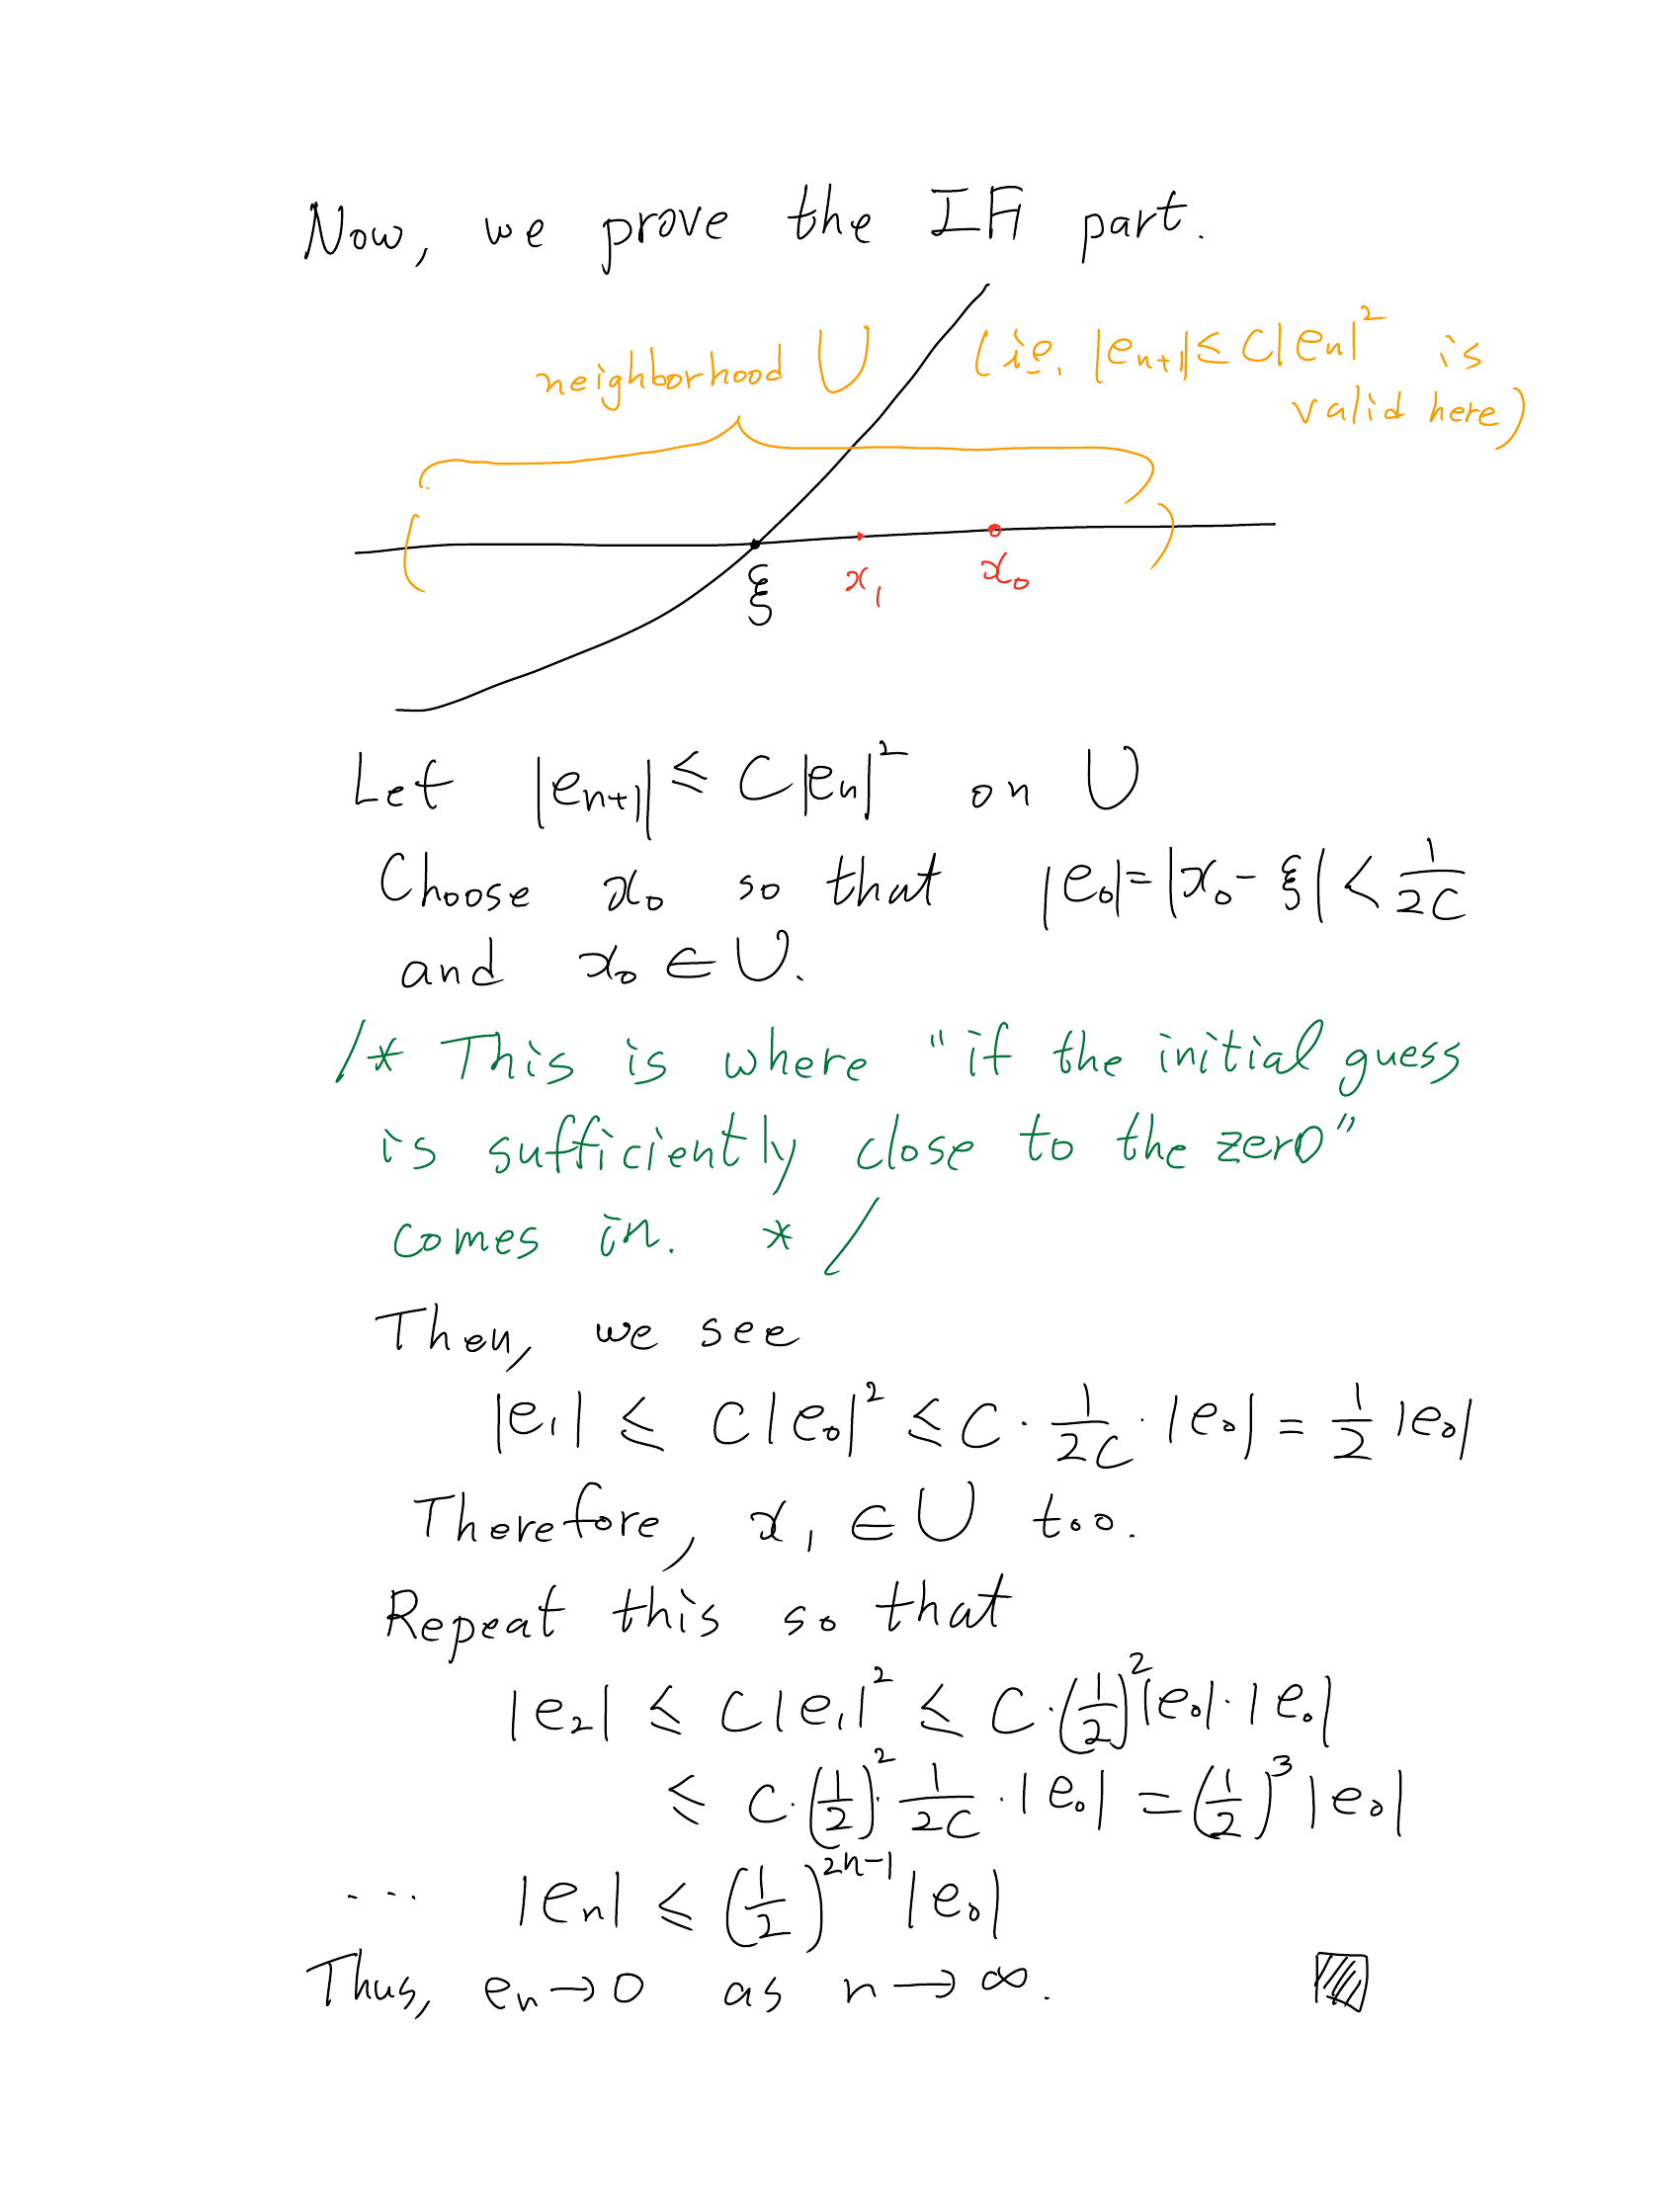 Now, we prove the IF part.
neighborhood U (ie. |eₙ₊₁| ≤ C|eₙ|² is
valid here)
ξ x₁ x₀
Let |eₙ₊₁| ≤ C|eₙ|² on U
Choose x₀ so that |e₀| = |x₀ - ξ| < 1/2C
and x₀ ∈ U.
/* This is where "if the initial guess
is sufficiently close to the zero"
comes in. */
Then, we see
|e₁| ≤ C|e₀|² ≤ C · 1/2C · |e₀| = 1/2 |e₀|
Therefore, x₁ ∈ U too.
Repeat this so that
|e₂| ≤ C|e₁|² ≤ C · (1/2)² |e₀| · |e₀|
≤ C · (1/2)² · 1/2C · |e₀| = (1/2)³ |e₀|
... |eₙ| ≤ (1/2)²ⁿ⁻¹ |e₀|
Thus, eₙ → 0 as n → ∞.